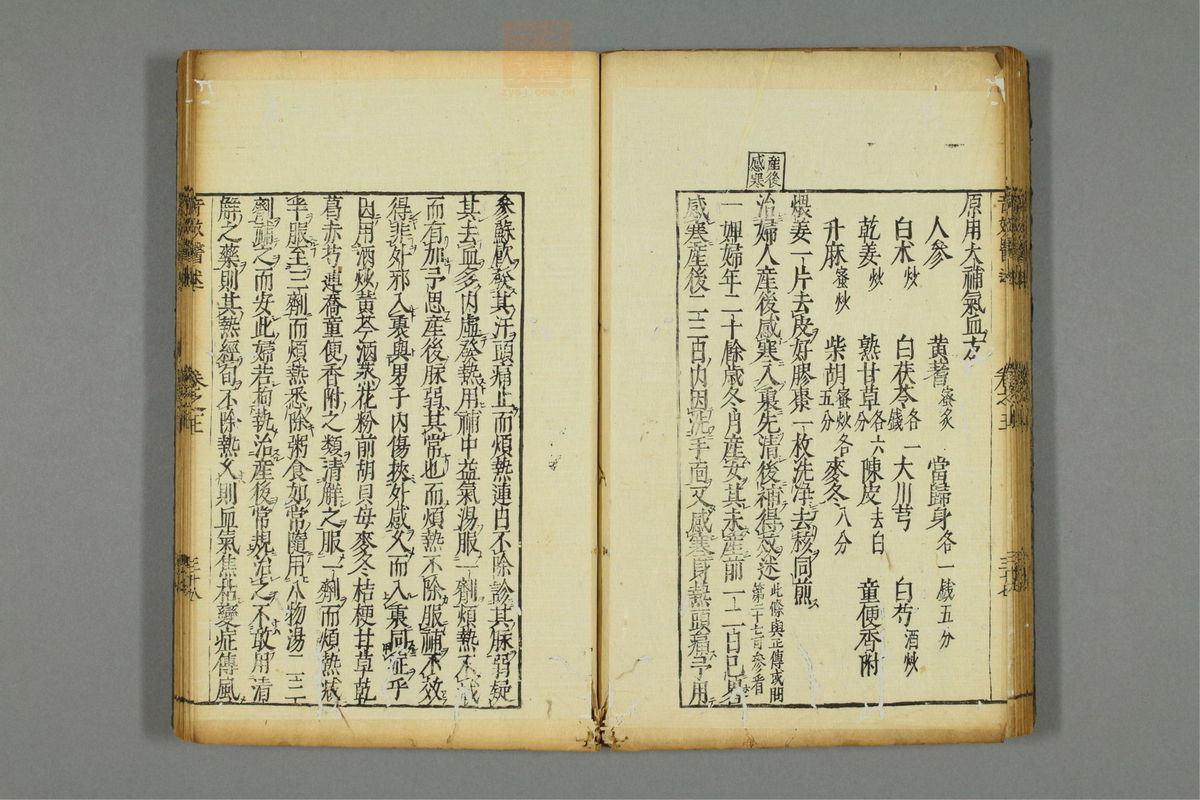 原用大補氣血方
人參 黄耆蜜炙 當歸身各一錢五分
白朮炒 白茯苓各一錢 大川芎 白芍酒炒
乾姜炒 熟甘草各六分 陳皮去白 童便香附
升麻蜜炒 柴胡蜜炒各五分 麥冬八分
煨姜一片去皮好膠棗一枚洗净去核同煎
產後感寒
治婦人產後感寒入裏先清後補得效述此條與正傳或問第二十七可參看
一婢婦年二十餘歳冬月產安其未產前一二日已
感寒產後二三日内因洗手面又感寒身熱頭痛予用
參蘇飲發其汗頭痛止而煩熱連日不除診其脉弱疑
其去血多内虚發熱用補中益氣湯服一劑煩熱不減
而有加予思產後脉弱其常也而煩熱不除服補不效
得非外邪入裏與男子内傷挾外感久而入裏同症乎
因用酒炒黄芩酒蒸花粉前胡貝母麥冬桔梗甘草乾
葛赤芍連喬童便香附之類清解之服一劑而煩熱減
半服至三劑而煩熱悉除粥食如常隨用八物湯二三
劑補之而安此婦若拘執治產後常規治之不敢用清
解之藥則其熱經旬不除熱久則血氣焦枯變症傳風
卷之五
三十八